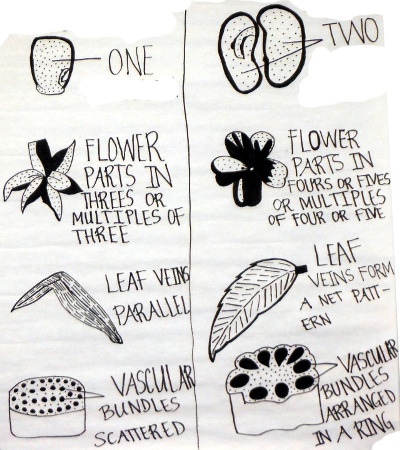 ONE
FLOWER
PARTS IN
THREES OR
MULTIPLES OF
THREE
LEAF VEINS
PARALLEL
VASCULAR
BUNDLES
SCATTERED
TWO
FLOWER
PARTS IN
FOURS OR FIVES
OR MULTIPLES
OF FOUR OR FIVE
LEAF
VEINS FORM
A NET PATT-
ERN
VASCULAR
BUNDLES
ARRANGED
IN A RING